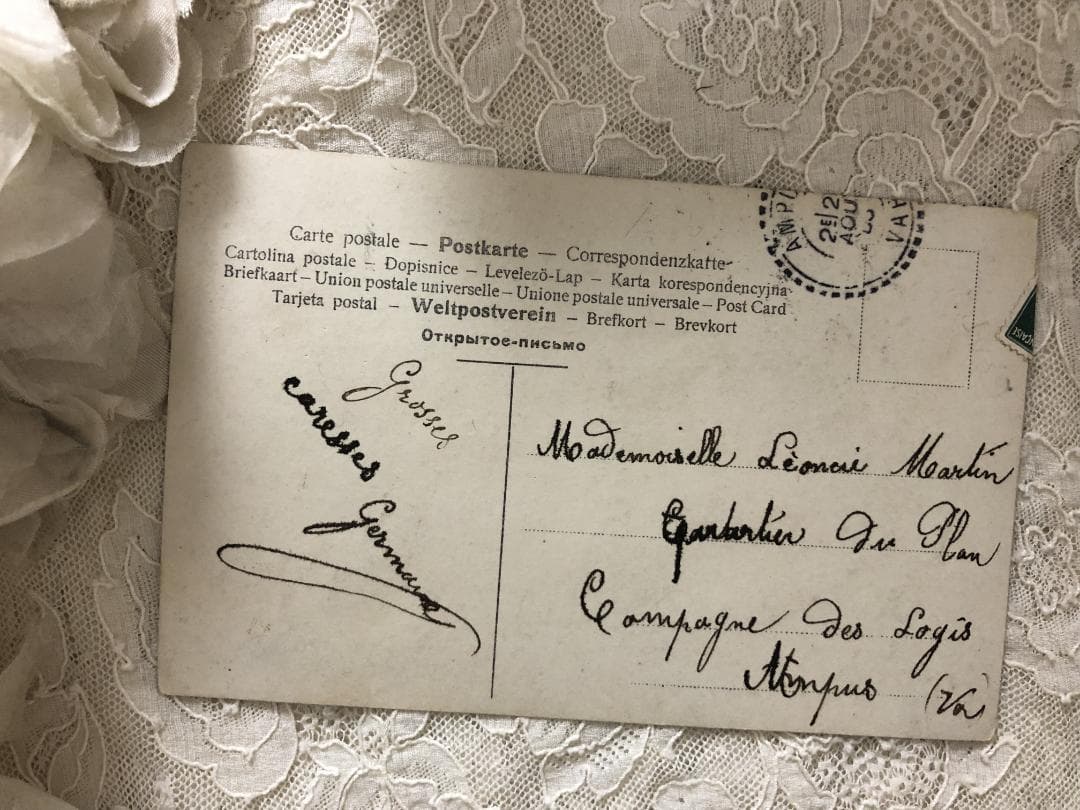 Carte postale — Postkarte — Correspondenzkafte
Cartolina postale – Dopisnice – Levelezö-Lap – Karta korespondencyjna
Briefkaart – Union postale universelle – Unione postale universale – Post Card
Tarjeta postal – Weltpostverein – Brefkort – Brevkort
Открытое-письмо
AMPU
2E/2
AOU
3
VAR
ÇAISE
Grosses
caresses
Germaine
Mademoiselle Léoncie Martin
Quartier du Plan
Campagne des Logis
Ampus (Var)